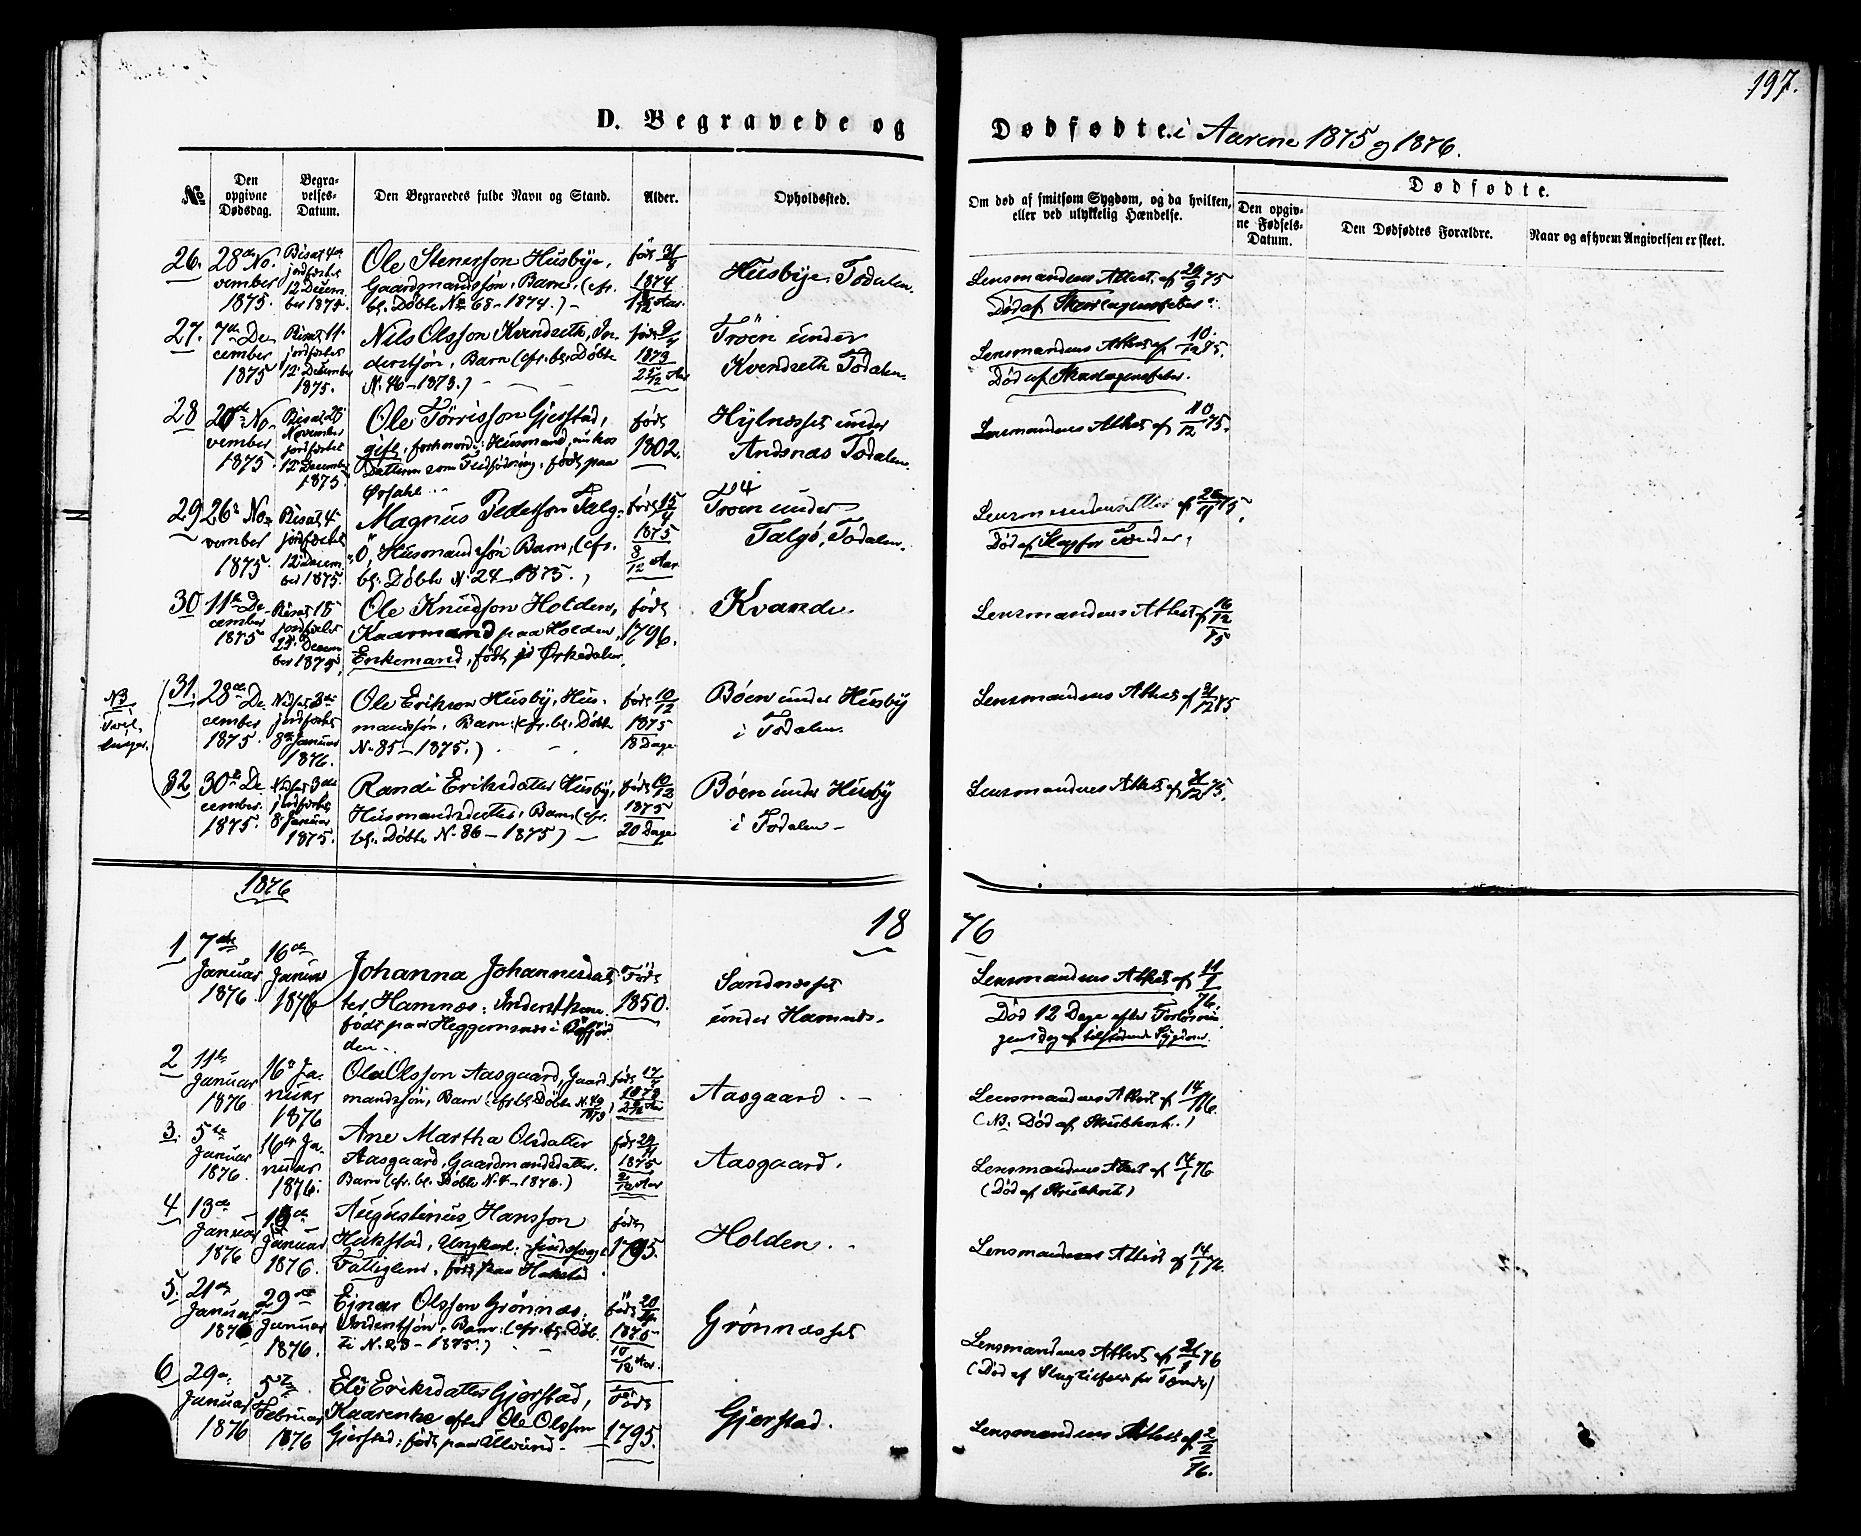 197.
D. Begravede og Dødfødte i Aarene 1875 og 1876.
№
Den opgivne Dødsdag.
Begravelses-Datum.
Den Begravedes fulde Navn og Stand.
Alder.
Opholdssted.
Om død af smitsom Sygdom, og da hvilken, eller ved ulykkelig Hændelse.
Dødfødte.
Den opgivne Fødsels-Datum.
Den Dødfødtes Forældre.
Naar og af hvem Angivelsen er skeet.
26.
28de No-
vember
1875.
Bisat 4de
jordfæstet
12 Decem-
ber 1875.
Ole Stenersson Husbye,
Gaardmandssøn, Barn, (cfr.
bl. Døbte No 68-1874.) -
født 31/8
1874
Husbye, Todalen.
Lensmandens Attest af 29/9 75
Død af Skarlagensfeber.
27.
7de De-
cember
1875
Bisat 11.
jordfæstet
12 December
1875.
Nils Olsson Kvendseth, In-
derstsøn, Barn (cfr. bl. Døbte
N. 46-1873.)
født 9/7
1873
2 5/12 Aar
Trøen under
Kvendseth Todalen.
Lensmandens Attest af 10/12 75.
Død af Skarlagensfeber.
28
20de No-
vember
1875.
Bisat 28
November
jordfæstet
12 December
1875.
Ole Tørrisson Gjerstad,
gift, forhenv. Husmand, nu hos
Datteren som Fledføring, født paa
født
1802.
Hylnæsset under
Andsnæs Todalen.
Lensmandens Attest af 10/12 75.
29
26de No-
vember
1875.
Bisat 4de
jordfæstet
12 Decem-
ber 1875.
Magnus Pedersson Talg-
ø, Husmandssøn, Barn, (cfr.
bl. Døbte N. 24-1875.)
født 15/4
1875
8/12 Aar
Trøen under
Talgø, Todalen.
Lensmandens Attest af
Død af Slag for Tænder.
30
11te De-
cember
1875
Bisat 18
jordfæstet
Decem-
ber 1875.
Ole Knudson Holden,
Kaarmand paa Holden,
Enkemand, født i Ørkedalen.
født
1796.
Kvande.
Lensmandens Attest af 16/12
75
NB
Tvil-
linger.
31.
28de De-
cember
1875.
Nedsat 3die
jordfæstet
8de Januar
1876.
Ole Erikson Husby, Hus-
mandssøn, Barn. (cfr. bl. Døbte
N. 85-1875.)
født 10/12
1875
18 Dage
Bøen under Husby
i Todalen.
Lensmandens Attest af 31/12 75.
32
30te De-
cember.
1875.
Nedsat 3die
jordfæstet
8 Januar
1875.
Randi Eriksdatter Husby,
Husmandsdatter, Barn (cfr.
bl. Døbte N. 86-1875)
født 10/12
1875
20 Dage
Bøen under Husby
i Todalen -
Lensmandens Attest af 31/12 75.
1876
18
76
1
7de
Januar
1876
16de
Januar
1876
Johanna Johannesdat-
ter Hamnes, Inderstkone.
født paa Heggemsnæs i
den.
Født
1850.
Sandnæsset
under Hamnes.
Lensmandens Attest af 14/1
76.
Død 12 Dage efter Forløsnin-
gens dag af tilstødende Sygdom.
2
11te
Januar
1876
16de Ja-
nuar
1876
Ole Olsson Aasgaard, Gaard-
mandssøn, Barn (cfr bl. Døbte N. 49/1873)
født 17/7
1873
2 Aar
Aasgaard. -
Lensmandens Attest af 14/1 76.
(NB. Død af Strubhost.)
3.
5te
Januar
1876.
16de Ja-
nuar.
1876.
Ane Martha Olsdatter
Aasgaard, Gaardmandsdatter.
Barn (cfr. bl. Døbte N. 4-1876.)
født 29/11
1875
2/12 Aar
Aasgaard.
Lensmandens Attest af 14/1 76
(Død af Strubhost)
4
13de
Januar
1876
Januar
1876.
Augustinus Hansson
Hakstad, Ungkarl, sindssvagt
Fattiglem, født paa Hakstad
født
1795.
Holden.
Lensmandens Attest af 14/1 76.
5.
21de
Januar
1876
29de
Januar
1876.
Ejnar Olsson Grønnæs,
Inderstsøn, Barn. (cfr. bl. Døb-
te N. 23-1875.)
født
1875
10/12 Aar.
Grønnæsset
Lensmandens Attest af 31/1 76
(Død af Slagtilfælde for Tænder)
6
29de
Januar
1876
5te
Februar
1876
Eli Eriksdatter Gjerstad,
Kaarenke efter Ole Olsson
Gjerstad, født paa Ulvund -
Født
1795.
Gjerstad.
Lensmandens Attest af 2/2
76.